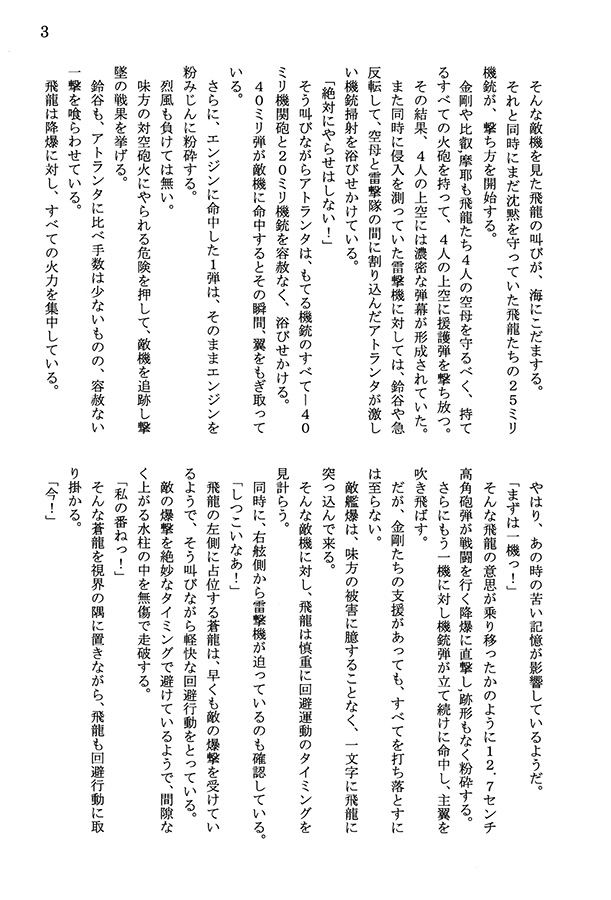 3
そんな敵機を見た飛龍の叫びが、海にこだまする。
それと同時にまだ沈黙を守っていた飛龍たちの25ミリ
機銃が、撃ち方を開始する。
金剛や比叡,摩耶も飛龍たち4人の空母を守るべく、持て
るすべての火砲を持って、4人の上空に援護弾を撃ち放つ。
その結果、4人の上空には濃密な弾幕が形成されていた。
また同時に侵入を測っていた雷撃機に対しては、鈴谷や急
反転して、空母と雷撃隊の間に割り込んだアトランタが激し
い機銃掃射を浴びせかけている。
「絶対にやらせはしない！」
そう叫びながらアトランタは、もてる機銃のすべてー40
ミリ機関砲と20ミリ機銃を容赦なく、浴びせかける。
40ミリ弾が敵機に命中するとその瞬間、翼をもぎ取って
いる。
さらに、エンジンに命中した1弾は、そのままエンジンを
粉みじんに粉砕する。
烈風も負けては無い。
味方の対空砲火にやられる危険を押して、敵機を追跡し撃
墜の戦果を挙げる。
鈴谷も、アトランタに比べ手数は少ないものの、容赦ない
一撃を喰らわせている。
飛龍は降爆に対し、すべての火力を集中している。
やはり、あの時の苦い記憶が影響しているようだ。
「まずは一機っ！」
そんな飛龍の意思が乗り移ったかのように12.7センチ
高角砲弾が戦闘を行く降爆に直撃し,跡形もなく粉砕する。
さらにもう一機に対し機銃弾が立て続けに命中し、主翼を
吹き飛ばす。
だが、金剛たちの支援があっても、すべてを打ち落とすに
は至らない。
敵艦爆は、味方の被害に臆することなく、一文字に飛龍に
突っ込んで来る。
そんな敵機に対し、飛龍は慎重に回避運動のタイミングを
見計らう。
同時に、右舷側から雷撃機が迫っているのも確認している。
「しつこいなあ！」
飛龍の左側に占位する蒼龍は、早くも敵の爆撃を受けてい
るようで、そう叫びながら軽快な回避行動をとっている。
敵の爆撃を絶妙なタイミングで避けているようで、間隙な
く上がる水柱の中を無傷で走破する。
「私の番ねっ！」
そんな蒼龍を視界の隅に置きながら、飛龍も回避行動に取
り掛かる。
「今！」